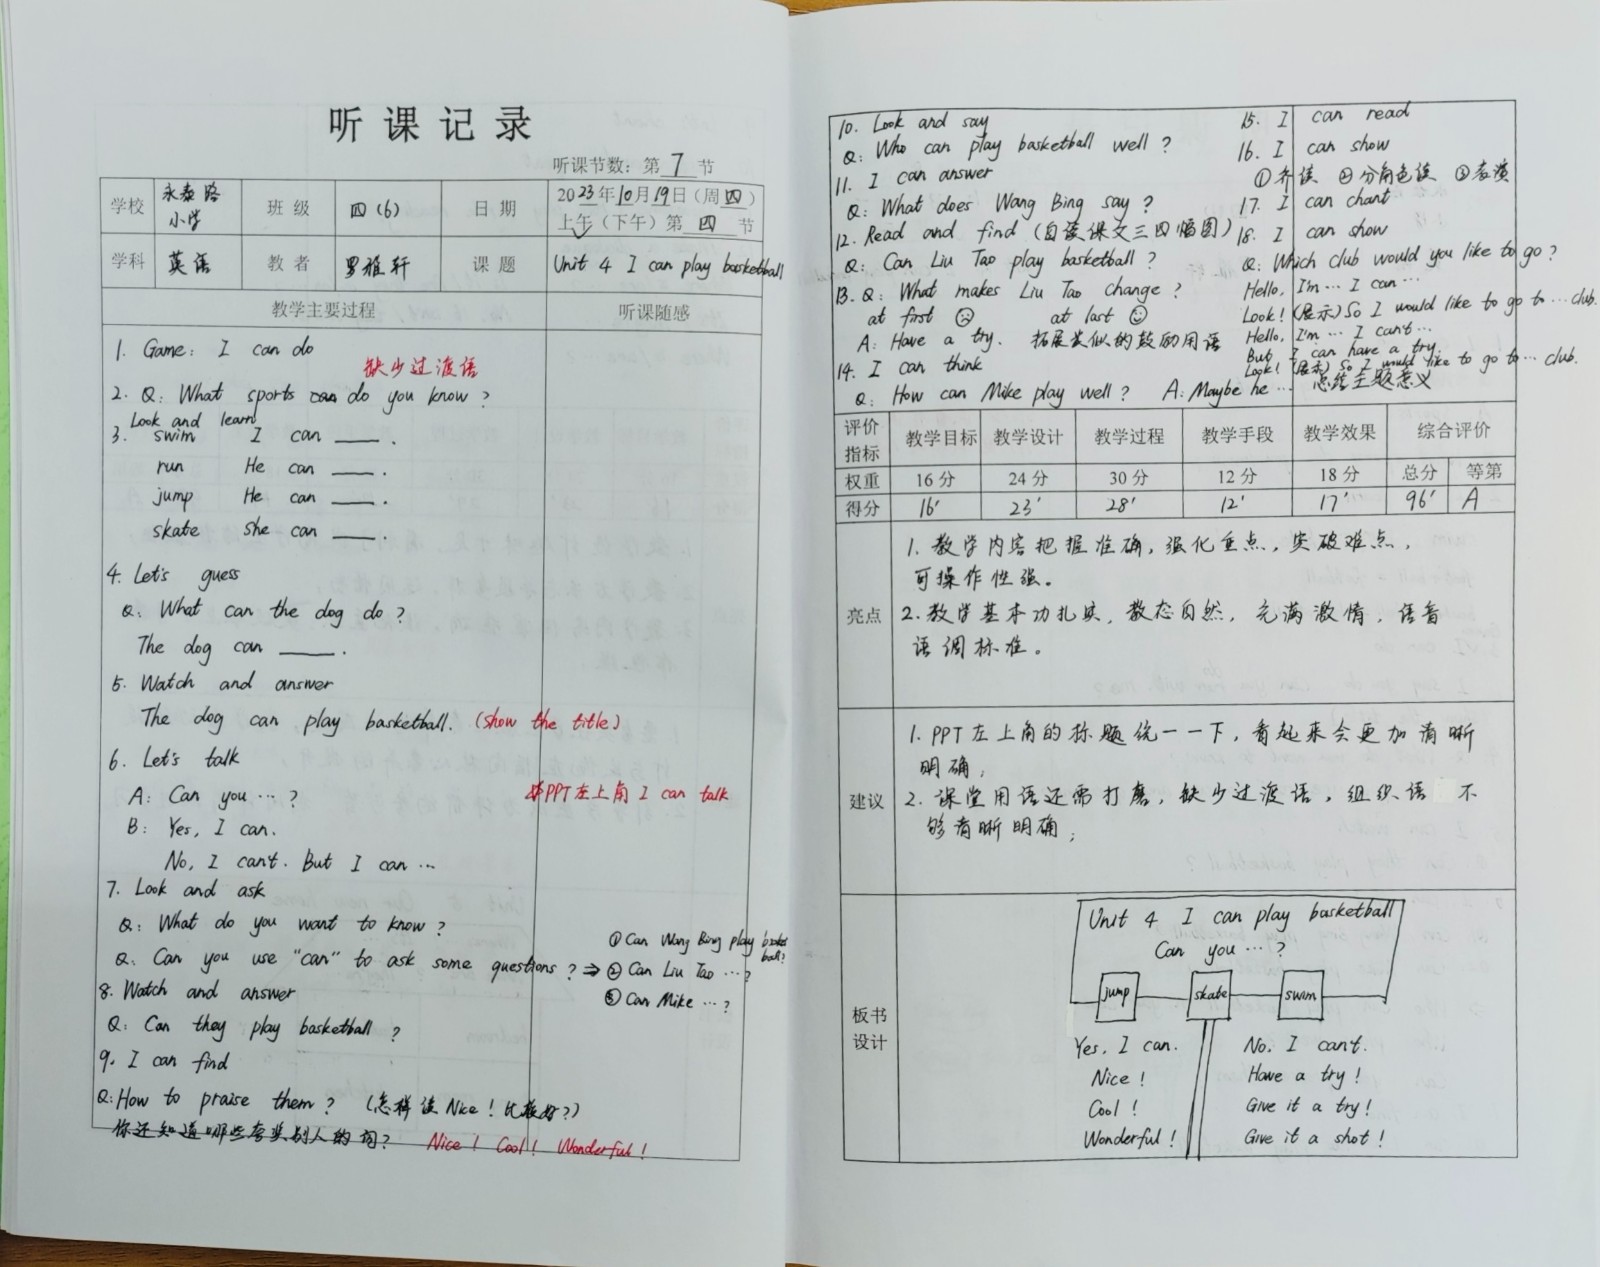 听课记录
听课节数：第 7 节
学校 永泰路小学 班级 四(6) 日期 2023年10月19日(周四) 上午(下午)第 四 节
学科 英语 教者 罗雅轩 课题 Unit 4 I can play basketball
教学主要过程 听课随感
1. Game: I can do
缺少过渡语
2. Q: What sports can do you know?
Look and learn
3. swim I can ____.
run He can ____.
jump He can ____.
skate She can ____.
4. Let's guess
Q: What can the dog do?
The dog can ____.
5. Watch and answer
The dog can play basketball. (show the title)
6. Let's talk
A: Can you … ? PPT左上角 I can talk
B: Yes, I can.
No, I can't. But I can …
7. Look and ask
Q: What do you want to know?
Q: Can you use "can" to ask some questions? ⇒
① Can Wang Bing play basketball?
② Can Liu Tao … ?
③ Can Mike … ?
8. Watch and answer
Q: Can they play basketball?
9. I can find
Q: How to praise them? (怎样读Nice! 比较好?)
你还知道哪些夸奖别人的词? Nice! Cool! Wonderful!
10. Look and say
Q: Who can play basketball well?
11. I can answer
Q: What does Wang Bing say?
12. Read and find (自读课文三四幅图)
Q: Can Liu Tao play basketball?
13. Q: What makes Liu Tao change?
at first ☹ at last ☺
A: Have a try. 拓展类似的鼓励用语
14. I can think
Q: How can Mike play well? A: Maybe he …
15. I can read
16. I can show
①齐读 ②分角色读 ③表演
17. I can chant
18. I can show
Q: Which club would you like to go?
Hello, I'm … I can …
Look! (展示) So I would like to go to … club.
Hello, I'm … I can't …
But I can have a try
Look! (展示) So I would like to go to … club.
总结主题意义
评价指标 教学目标 教学设计 教学过程 教学手段 教学效果 综合评价
权重 16分 24分 30分 12分 18分 总分 等第
得分 16' 23' 28' 12' 17' 96' A
亮点
1. 教学内容把握准确，强化重点，突破难点，
可操作性强。
2. 教学基本功扎实，教态自然，充满激情，语音
语调标准。
建议
1. PPT左上角的标题统一一下，看起来会更加清晰
明确；
2. 课堂用语还需打磨，缺少过渡语，组织语 不
够清晰明确；
板书设计
Unit 4 I can play basketball
Can you … ?
jump skate swim
Yes, I can. No, I can't.
Nice! Have a try!
Cool! Give it a try!
Wonderful! Give it a shot!